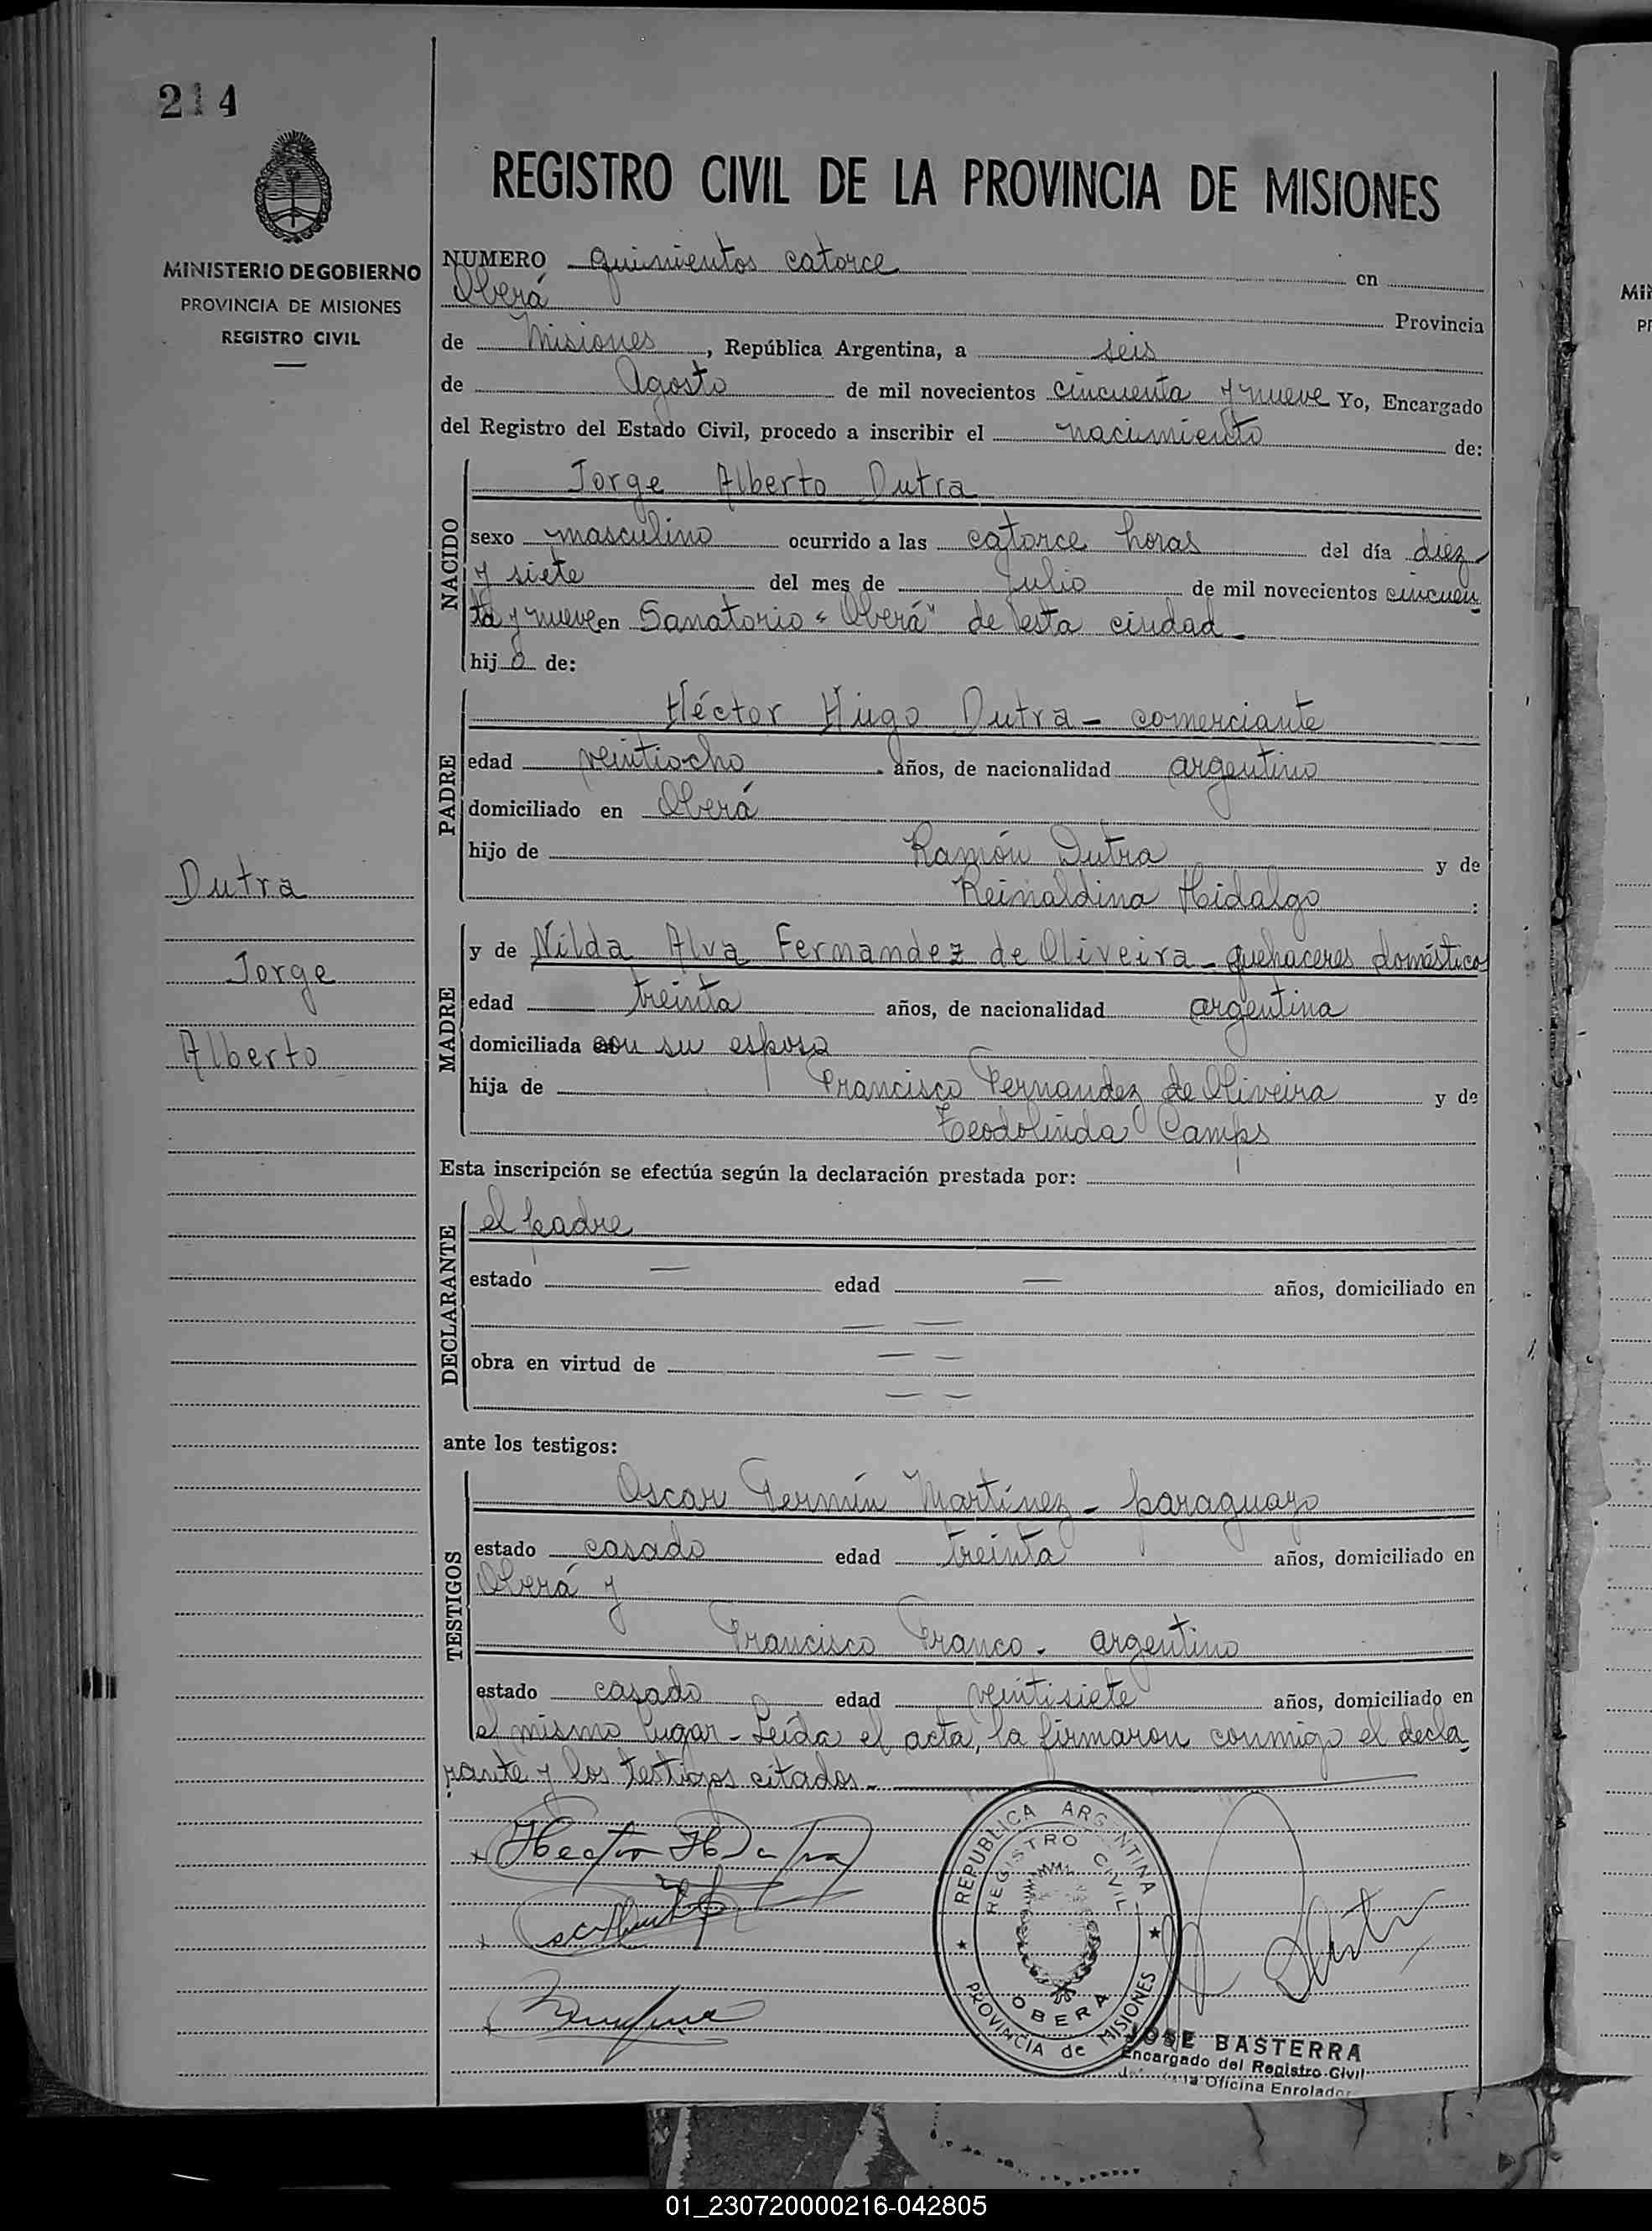 214
MINISTERIO DE GOBIERNO
PROVINCIA DE MISIONES
REGISTRO CIVIL
Dutra
Jorge
Alberto
REGISTRO CIVIL DE LA PROVINCIA DE MISIONES
NUMERO quinientos catorce en
Oberá Provincia
de Misiones, República Argentina, a seis
de Agosto de mil novecientos cincuenta y nueve Yo, Encargado
del Registro del Estado Civil, procedo a inscribir el nacimiento de:
NACIDO
Jorge Alberto Dutra
sexo masculino ocurrido a las catorce horas del día diez
y siete del mes de Julio de mil novecientos cincuen
ta y nueve en Sanatorio "Oberá" de esta ciudad
hijo de:
PADRE
Héctor Hugo Dutra - comerciante
edad veintiocho años, de nacionalidad argentino
domiciliado en Oberá
hijo de Ramón Dutra y de
Reinaldina Hidalgo :
MADRE
y de Nilda Alva Fernandez de Oliveira - quehaceres domésticos
edad treinta años, de nacionalidad argentina
domiciliada con su esposo
hija de Francisco Fernandez de Oliveira y de
Teodolinda Camps
Esta inscripción se efectúa según la declaración prestada por:
DECLARANTE
el padre
estado — edad — años, domiciliado en
— —
obra en virtud de — —
— —
ante los testigos:
TESTIGOS
Oscar Fermín Martínez - paraguayo
estado casado edad treinta años, domiciliado en
Oberá y
Francisco Franco - argentino
estado casado edad veintisiete años, domiciliado en
el mismo lugar - Leída el acta, la firmaron conmigo el decla
rante y los testigos citados.-
Hector H Dutra
REPUBLICA ARGENTINA
REGISTRO CIVIL
OBERA
PROVINCIA de MISIONES
JOSE BASTERRA
Encargado del Registro Civil
la Oficina Enrolado
01_230720000216-042805